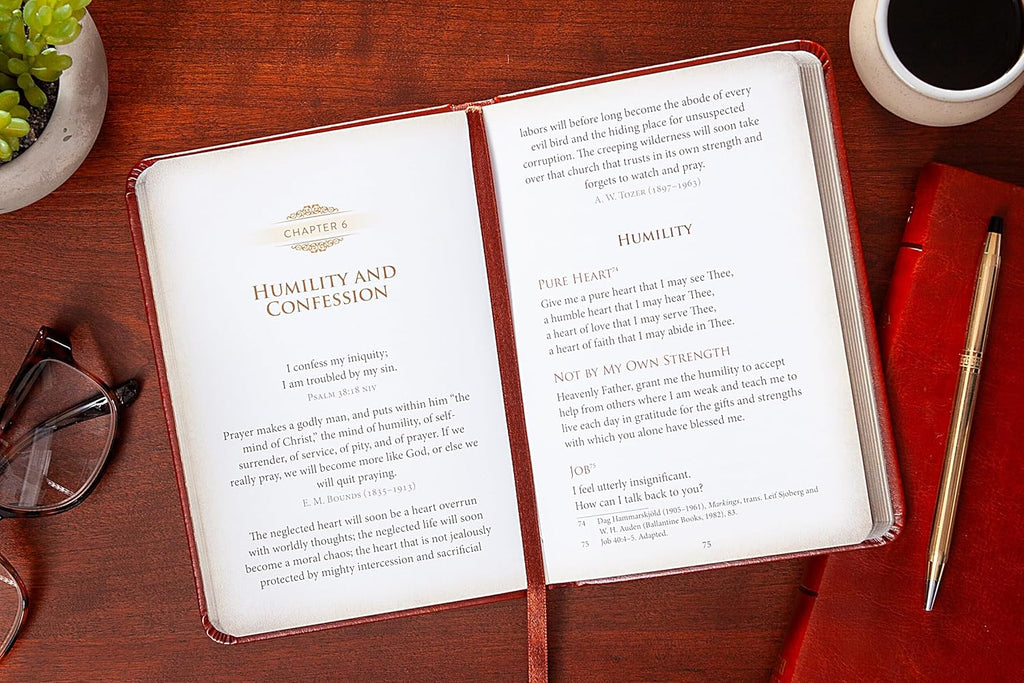 CHAPTER 6
HUMILITY AND
CONFESSION
I confess my iniquity;
I am troubled by my sin.
PSALM 38:18 NIV
Prayer makes a godly man, and puts within him “the
mind of Christ,” the mind of humility, of self-
surrender, of service, of pity, and of prayer. If we
really pray, we will become more like God, or else we
will quit praying.
E. M. BOUNDS (1835–1913)
The neglected heart will soon be a heart overrun
with worldly thoughts; the neglected life will soon
become a moral chaos; the heart that is not jealously
protected by mighty intercession and sacrificial
labors will before long become the abode of every
evil bird and the hiding place for unsuspected
corruption. The creeping wilderness will soon take
over that church that trusts in its own strength and
forgets to watch and pray.
A. W. TOZER (1897–1963)
HUMILITY
PURE HEART⁷⁴
Give me a pure heart that I may see Thee,
a humble heart that I may hear Thee,
a heart of love that I may serve Thee,
a heart of faith that I may abide in Thee.
NOT BY MY OWN STRENGTH
Heavenly Father, grant me the humility to accept
help from others where I am weak and teach me to
live each day in gratitude for the gifts and strengths
with which you alone have blessed me.
JOB⁷⁵
I feel utterly insignificant.
How can I talk back to you?
74 Dag Hammarskjöld (1905–1961), Markings, trans. Leif Sjoberg and
W. H. Auden (Ballantine Books, 1982), 83.
75 Job 40:4–5. Adapted.
75